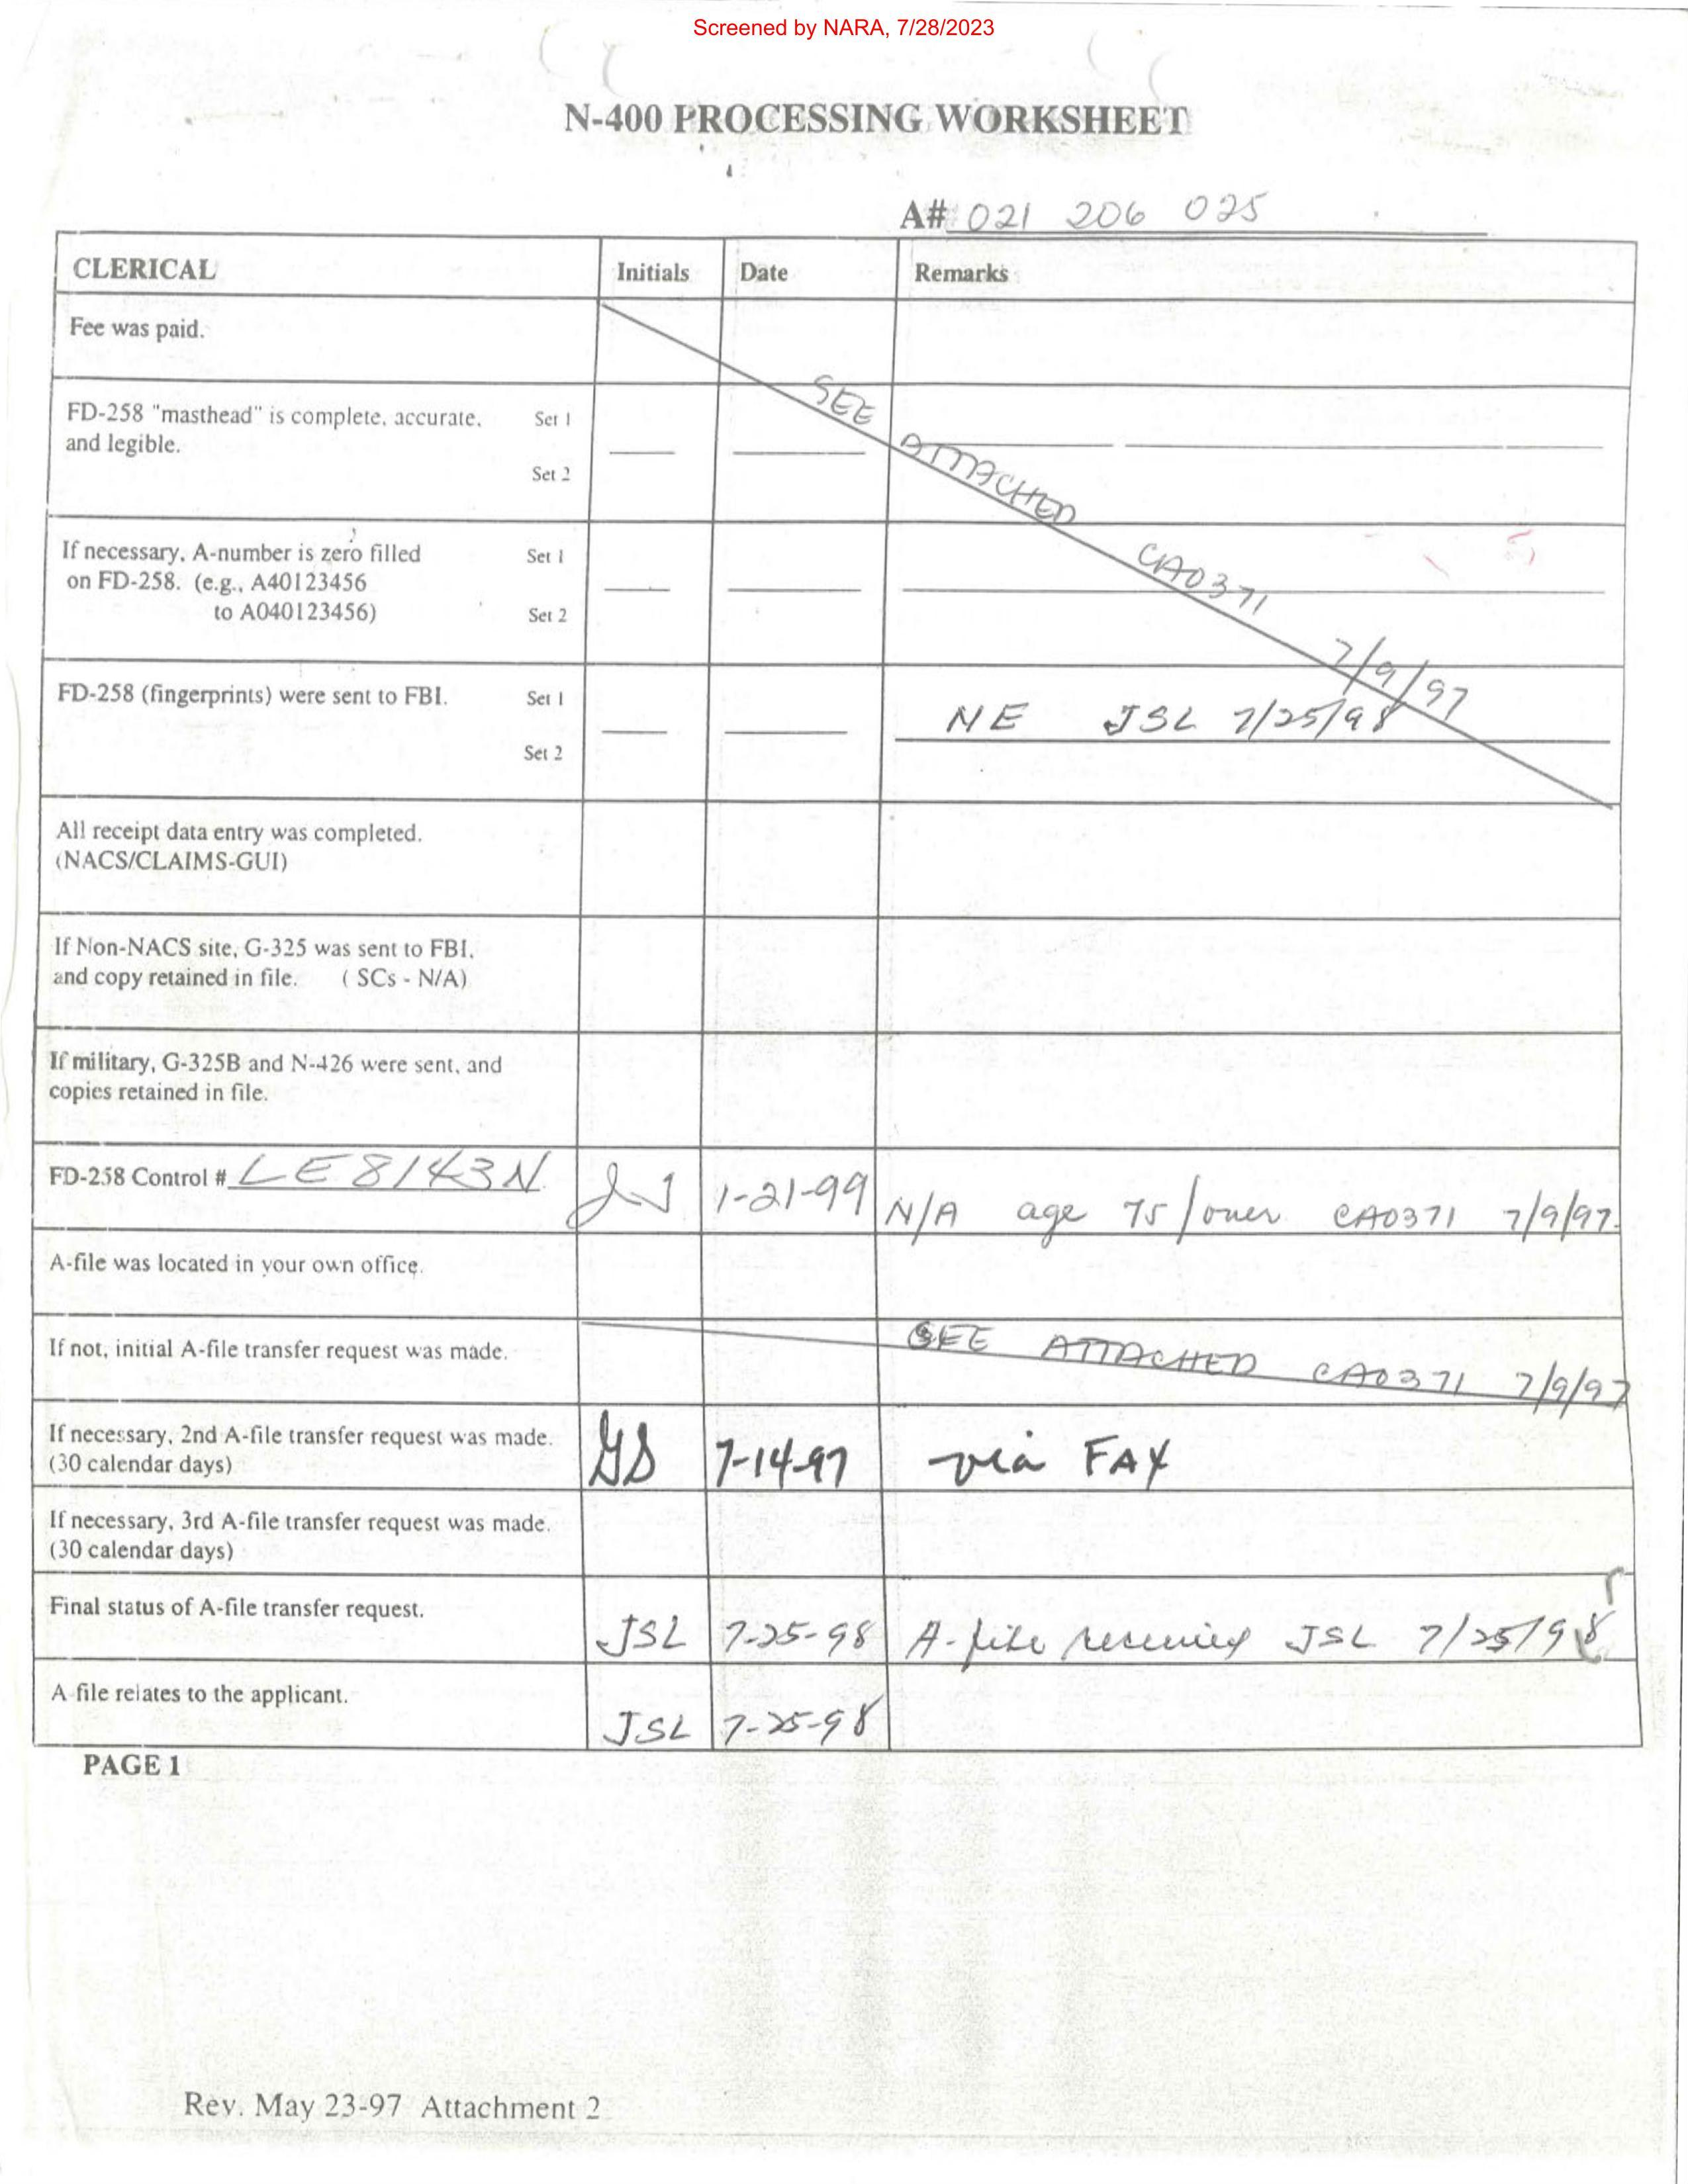 Screened by NARA, 7/28/2023
N-400 PROCESSING WORKSHEET
A# 021 206 025
CLERICAL Initials Date Remarks
Fee was paid.
SEE ATTACHED CA0371 7/9/97
FD-258 "masthead" is complete, accurate, Set 1
and legible.
Set 2
If necessary, A-number is zero filled Set 1
on FD-258. (e.g., A40123456
to A040123456) Set 2
FD-258 (fingerprints) were sent to FBI. Set 1
NE JSL 7/25/98
Set 2
All receipt data entry was completed.
(NACS/CLAIMS-GUI)
If Non-NACS site, G-325 was sent to FBI,
and copy retained in file. ( SCs - N/A)
If military, G-325B and N-426 were sent, and
copies retained in file.
FD-258 Control # LE8143N 1-21-99 N/A age 75/over CA0371 7/9/97
A-file was located in your own office.
If not, initial A-file transfer request was made. SEE ATTACHED CA0371 7/9/97
If necessary, 2nd A-file transfer request was made. 7-14-97 via FAX
(30 calendar days)
If necessary, 3rd A-file transfer request was made.
(30 calendar days)
Final status of A-file transfer request. JSL 7-25-98 A-file JSL 7/25/98
A file relates to the applicant. JSL 7-25-98
PAGE 1
Rev. May 23-97 Attachment 2